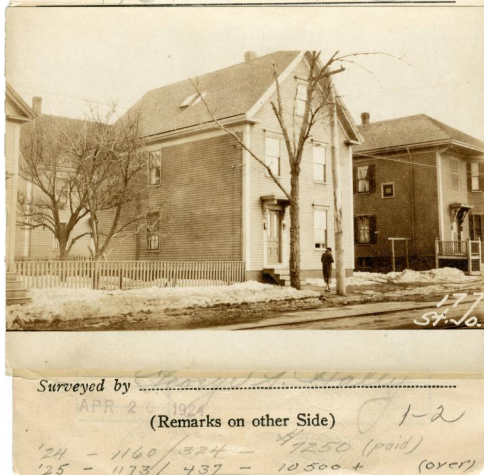 177
St. Jo.
Surveyed by
APR 2 1924
1-2
(Remarks on other Side)
'24 - 1160/324 - $7250 (paid)
'25 - 1173/437 - 10500+ (over)